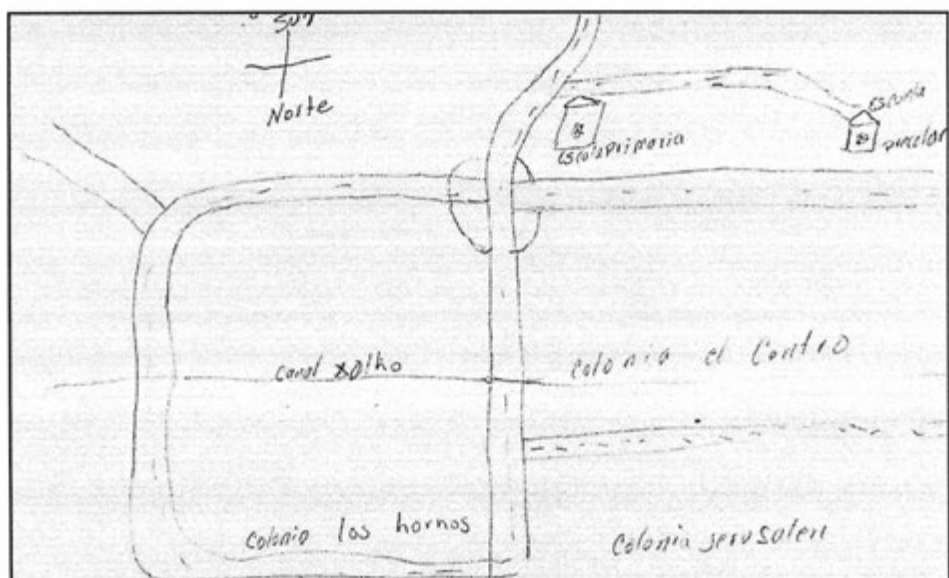 Sur
Norte
Escola Primaria
Escuela
parcelar
Canal xolho
Colonia el Centro
Colonia los hornos
Colonia jerusalen